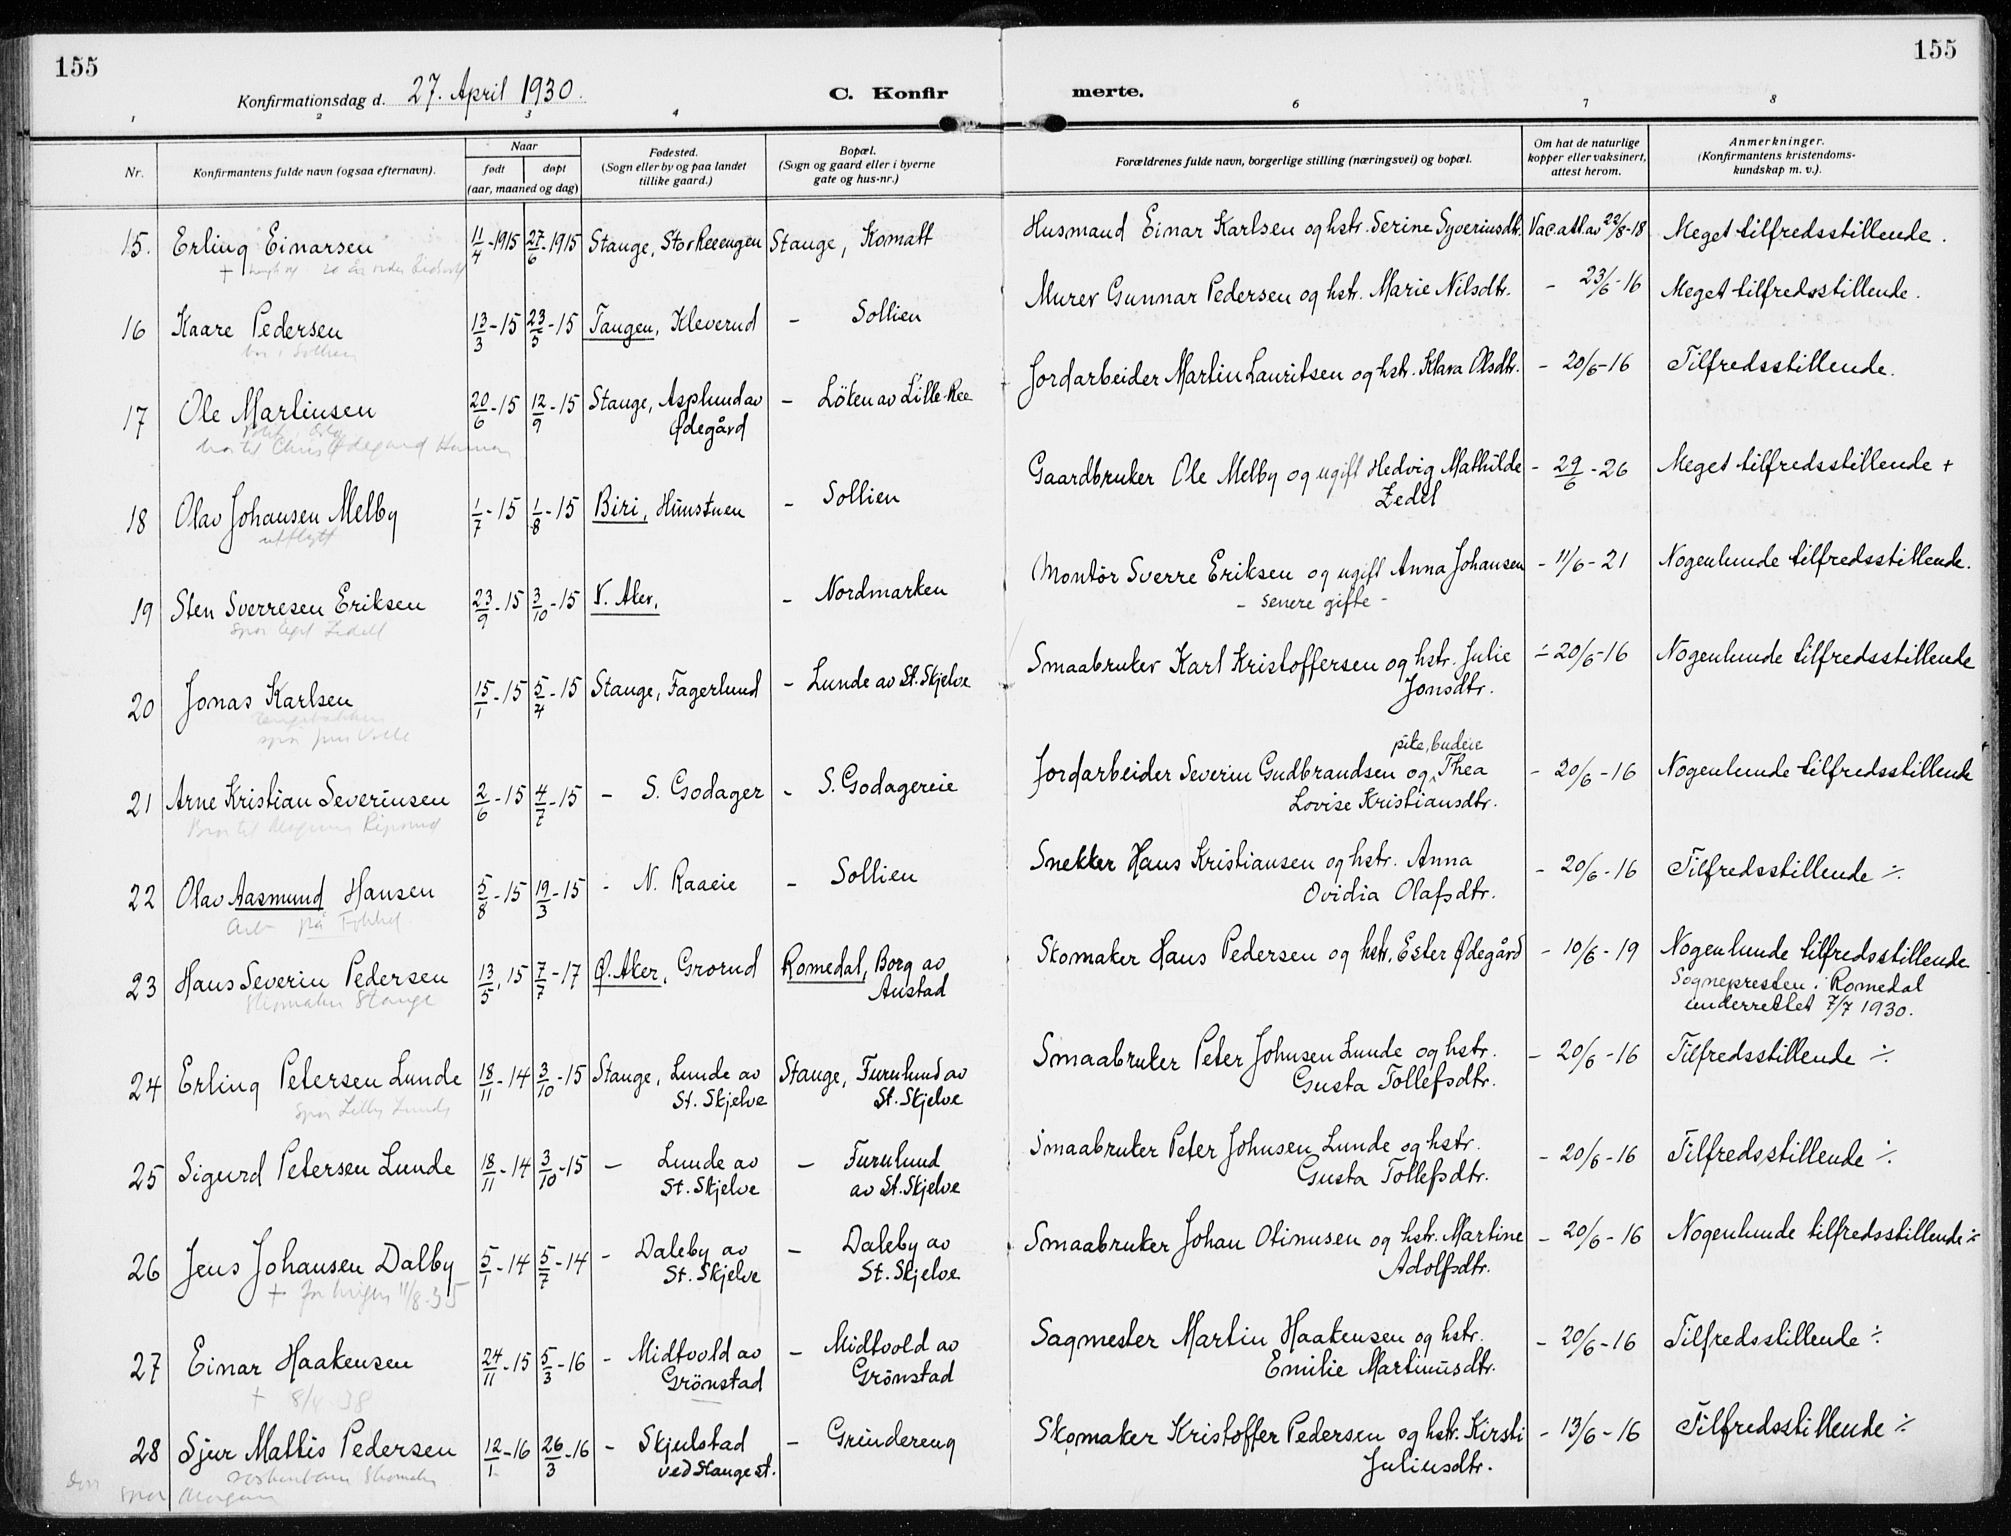 155
155
Konfirmationsdag d. 27. April 1930.
C. Konfir merte.
1 2 3 4 6 7 8
Nr.
Konfirmantens fulde navn (ogsaa efternavn).
Naar
født
døpt
(aar, maaned og dag)
Fødested.
(Sogn eller by og paa landet
tillike gaard.)
Bopæl.
(Sogn og gaard eller i byerne
gate og hus-nr.)
Forældrenes fulde navn, borgerlige stilling (næringsvei) og bopæl.
Om hat de naturlige
kopper eller vaksinert,
attest herom.
Anmerkninger.
(Konfirmantens kristendoms-
kundskap m. v.).
15. Erling Einarsen 11/4-1915 27/6-1915 Stange, Stor Reeengen Stange, Komatt Husmand Einar Karlsen og hstr. Serine Syverinsdtr. Vac.att.av 22/8-18 Meget tilfredsstillende.
16 Kaare Pedersen 13/3-15 23/5-15 Tangen, Kleverud - Sollien Murer Gunnar Pedersen og hstr. Marie Nilsdtr. - 23/6-16 Meget tilfredsstillende.
17 Ole Martinsen 20/6-15 12/9-15 Stange, Asplund av - Löten av Lille-Ree Jordarbeider Martin Lauritsen og hstr. Klara Olsdtr. - 20/6-16 Tilfredsstillende.
Ødegård
18 Olav Johansen Melby 1/7-15 1/8-15 Biri, Hunstuen - Sollien Gaardbruker Ole Melby og ugift Hedvig Mathilde - 29/6-26 Meget tilfredsstillende +
utflytt Zedel
19 Sten Sverresen Eriksen 23/9-15 3/10-15 V. Aker, - Nordmarken Montör Sverre Eriksen og ugift Anna Johansen - 11/6-21 Nogenlunde tilfredsstillende.
- senere gifte -
20 Jonas Karlsen 15/1-15 5/4-15 Stange, Fagerlund - Lunde av St. Skjelve Smaabruker Karl Kristoffersen og hstr. Julie - 20/6-16 Nogenlunde tilfredsstillende
Jonsdtr.
pike, budeie
21 Arne Kristian Severinsen 2/6-15 4/7-15 - S. Godager - S. Godagereie Jordarbeider Severin Gudbrandsen og Thea - 20/6-16 Nogenlunde tilfredsstillende
Lovise Kristiansdtr.
22 Olav Aasmund Hansen 5/8-15 19/3-15 - N. Raaeie - Sollien Snekker Hans Kristiansen og hstr. Anna - 20/6-16 Tilfredsstillende ÷
Ovidia Olafsdtr.
23 Hans Severin Pedersen 13/5,15 7/7-17 Ø. Aker, Grorud Romedal, Borg av Skomaker Hans Pedersen og hstr. Ester Ødegård - 10/6-19 Nogenlunde tilfredsstillende
Skomaker Stange Austad Sognepresten i Romedal
underrettet 7/7 1930.
24 Erling Petersen Lunde 18/11-14 3/10-15 Stange, Lunde av Stange, Furulund av Smaabruker Peter Johnsen Lunde og hstr. - 20/6-16 Tilfredsstillende ÷
St. Skjelve St. Skjelve Gusta Tollefsdtr.
25 Sigurd Petersen Lunde 18/11-14 3/10-15 - Lunde av - Furulund Smaabruker Peter Johnsen Lunde og hstr. - 20/6-16 Tilfredsstillende ÷
St. Skjelve av St. Skjelve Gusta Tollefsdtr.
26 Jens Johansen Dalby 5/1-14 5/7-14 - Daleby av - Daleby av Smaabruker Johan Otinusen og hstr. Martine - 20/6-16 Nogenlunde tilfredsstillende ÷
St. Skjelve St. Skjelve Adolfsdtr.
+ 11/8-35
27 Einar Haakensen 24/11-15 5/3-16 - Midtvold av - Midtvold av Sagmester Martin Haakensen og hstr. - 20/6-16 Tilfredsstillende ÷
Grönstad Grönstad Emilie Martinusdtr.
+ 8/4 38
28 Sjur Mattis Pedersen 12/1-16 26/3-16 - Skjulstad - Grindereng Skomaker Kristoffer Pedersen og hstr. Kirsti - 13/6-16 Tilfredsstillende ÷
ved Stange st. Juliusdtr.